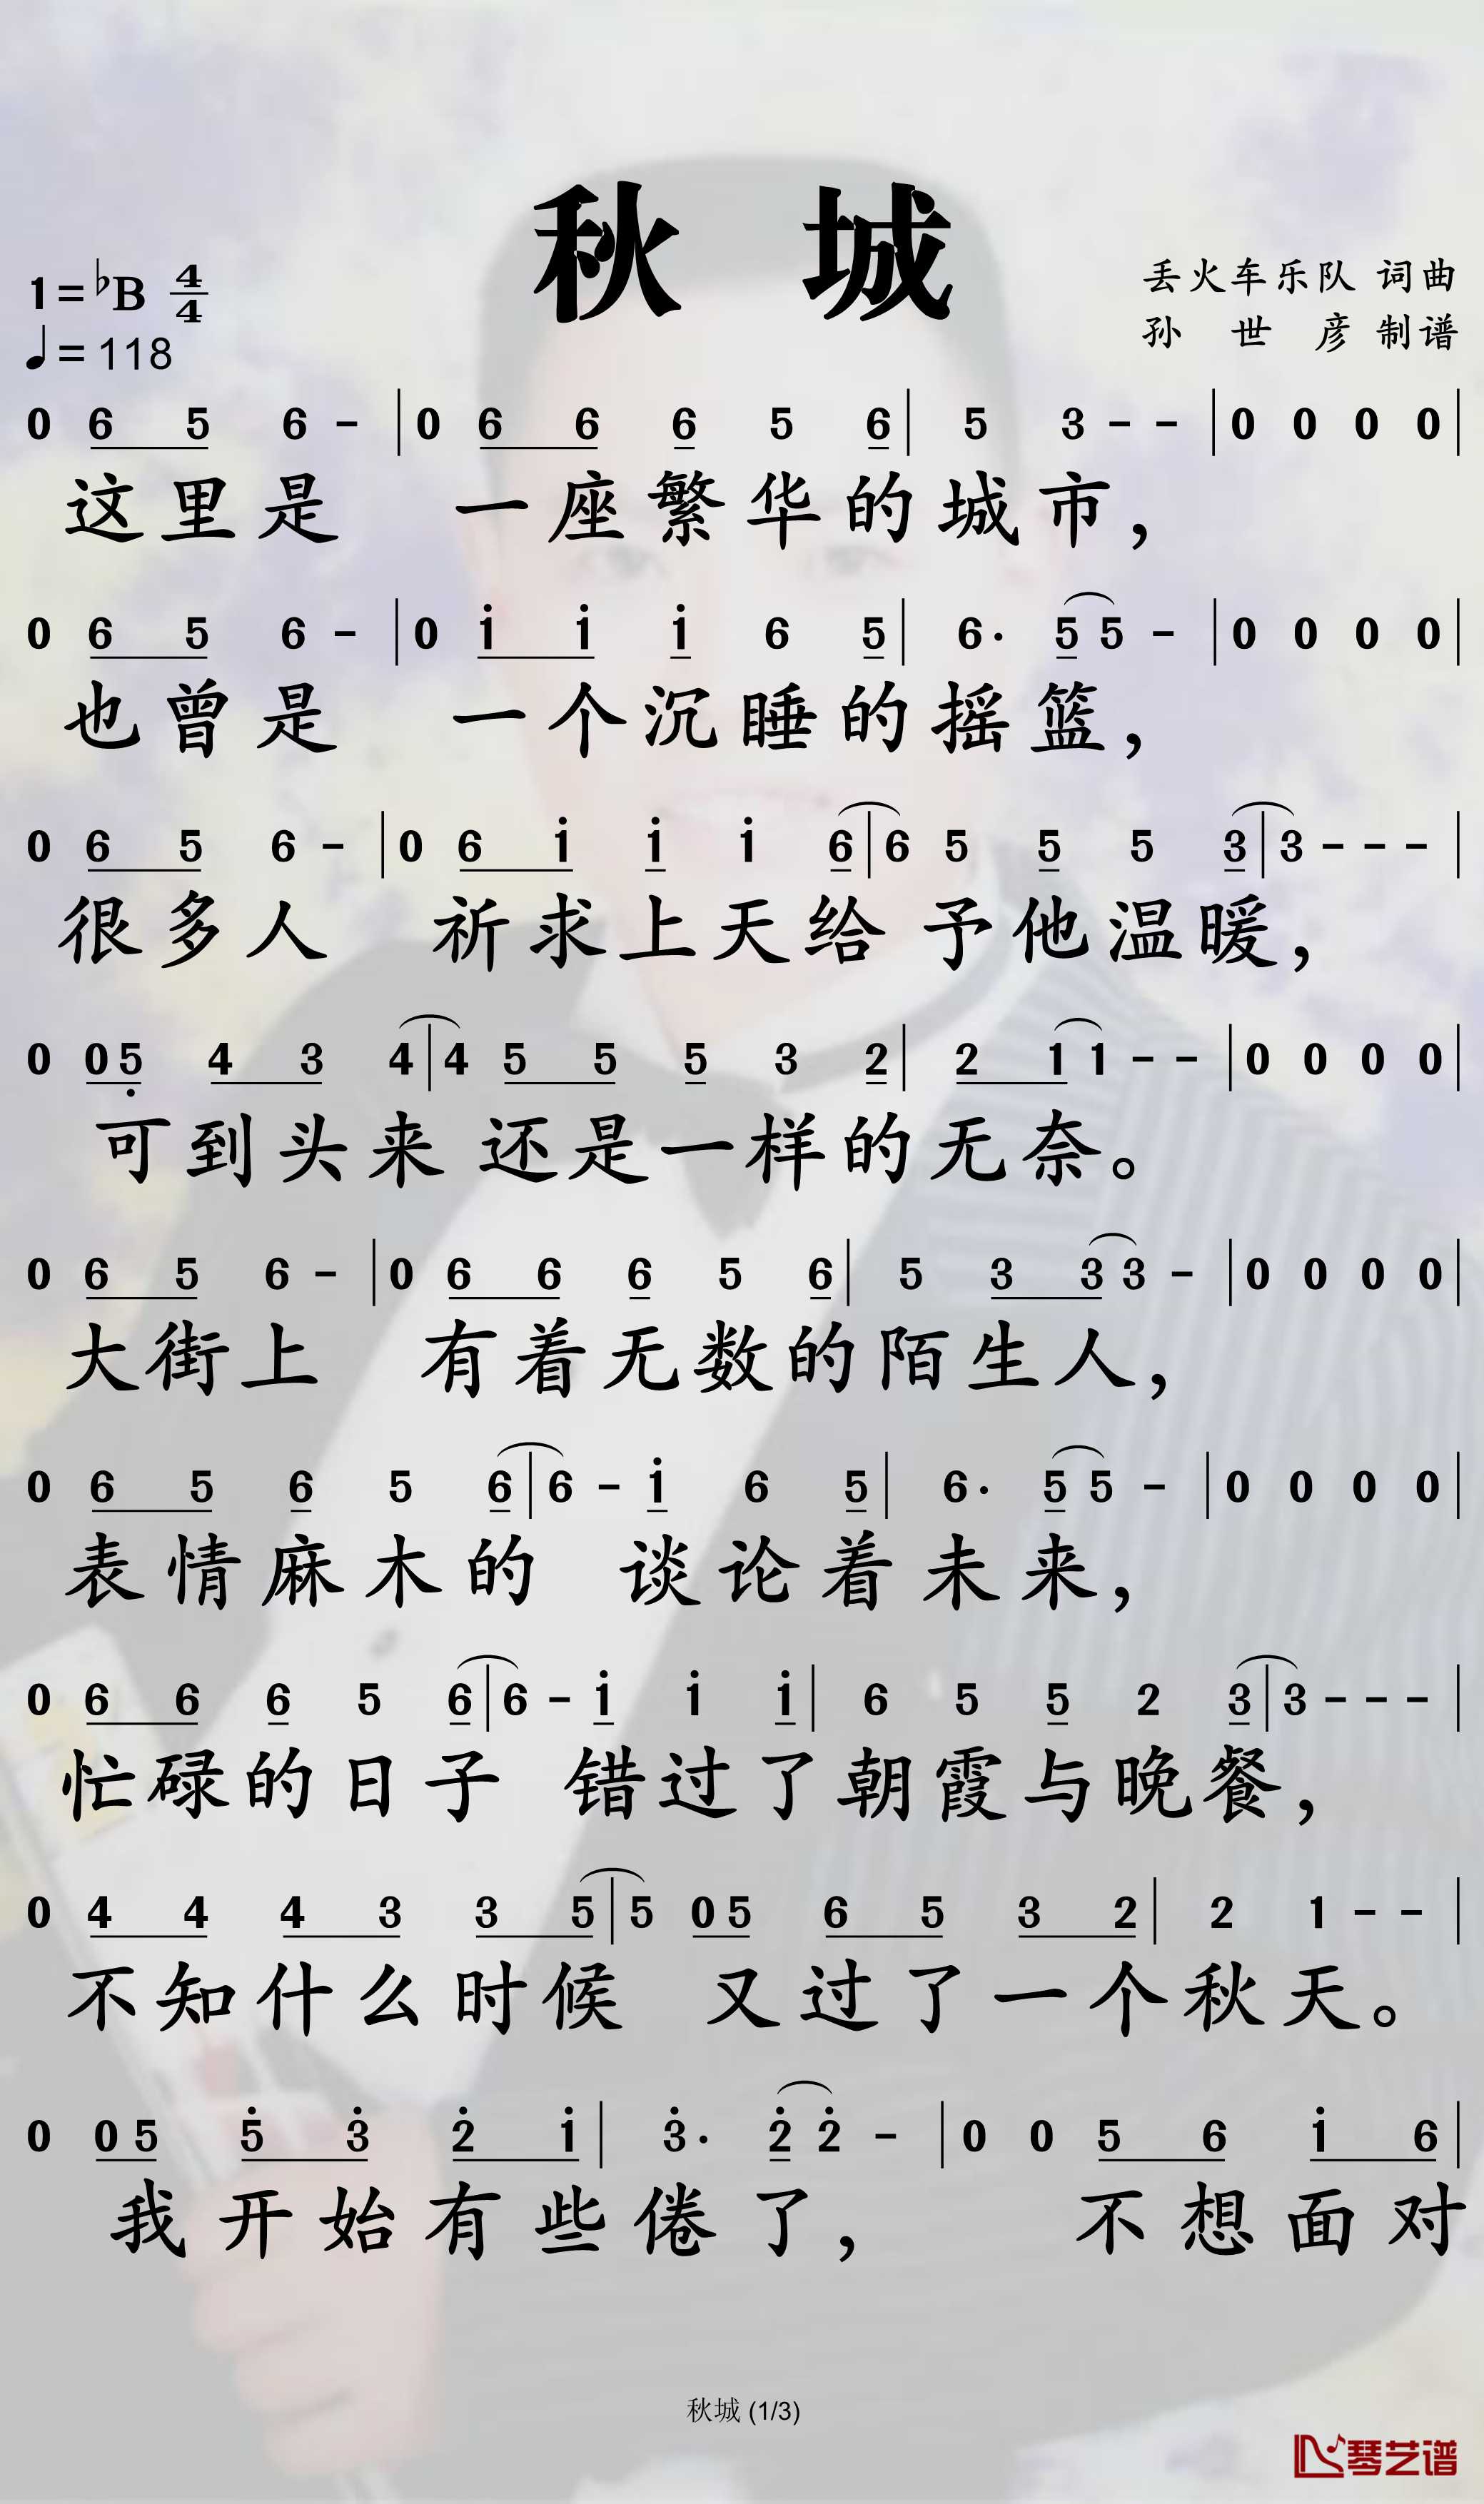 秋 城
1=♭B 4/4
丢火车乐队 词曲
♩=118
孙 世 彦 制谱
0 6 5 6 - | 0 6 6 6 5 6 | 5 3 - - | 0 0 0 0 |
这里是 一座繁华的城市，
0 6 5 6 - | 0 i i i 6 5 | 6· 5 5 - | 0 0 0 0 |
也曾是 一个沉睡的摇篮，
0 6 5 6 - | 0 6 i i i 6 | 6 5 5 5 3 | 3 - - - |
很多人 祈求上天给 予他温暖，
0 0 5̣ 4 3 4 | 4 5 5 5 3 2 | 2 1 1 - - | 0 0 0 0 |
可到头来 还是一样的无奈。
0 6 5 6 - | 0 6 6 6 5 6 | 5 3 3 3 - | 0 0 0 0 |
大街上 有着无数的陌生人，
0 6 5 6 5 6 | 6 - i 6 5 | 6· 5 5 - | 0 0 0 0 |
表情麻木的 谈论着未来，
0 6 6 6 5 6 | 6 - i i i | 6 5 5 2 3 | 3 - - - |
忙碌的日子 错过了朝霞与晚餐，
0 4 4 4 3 3 5 | 5 0 5 6 5 3 2 | 2 1 - - |
不知什么时候 又过了一个秋天。
0 0 5 5̇ 3̇ 2̇ i | 3̇· 2̇ 2̇ - | 0 0 5 6 i 6 |
我开始有些倦了， 不想面对
秋城 (1/3)
琴艺谱